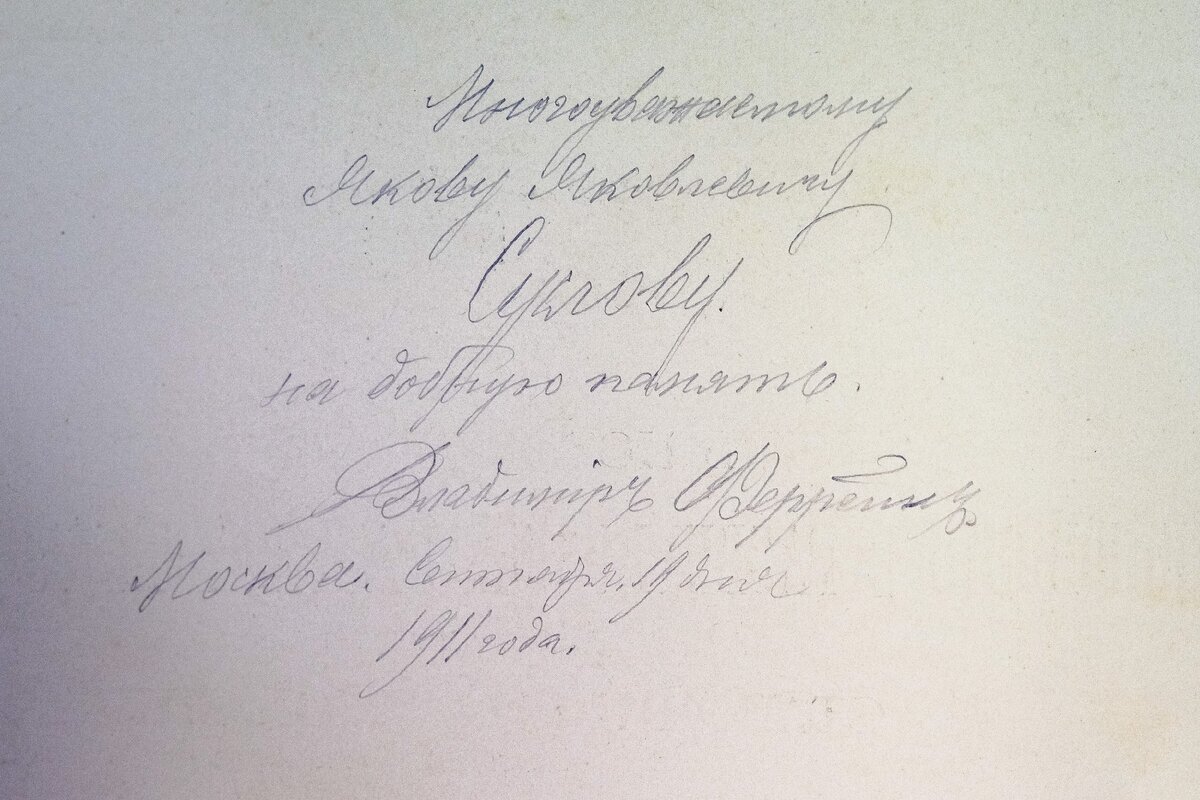 Многоуважаемому
Якову Яковлевичу
Суклову.
на добрую память.
Владимiръ Феррейнъ
Москва. Сентября. 19 дня
1911 года.